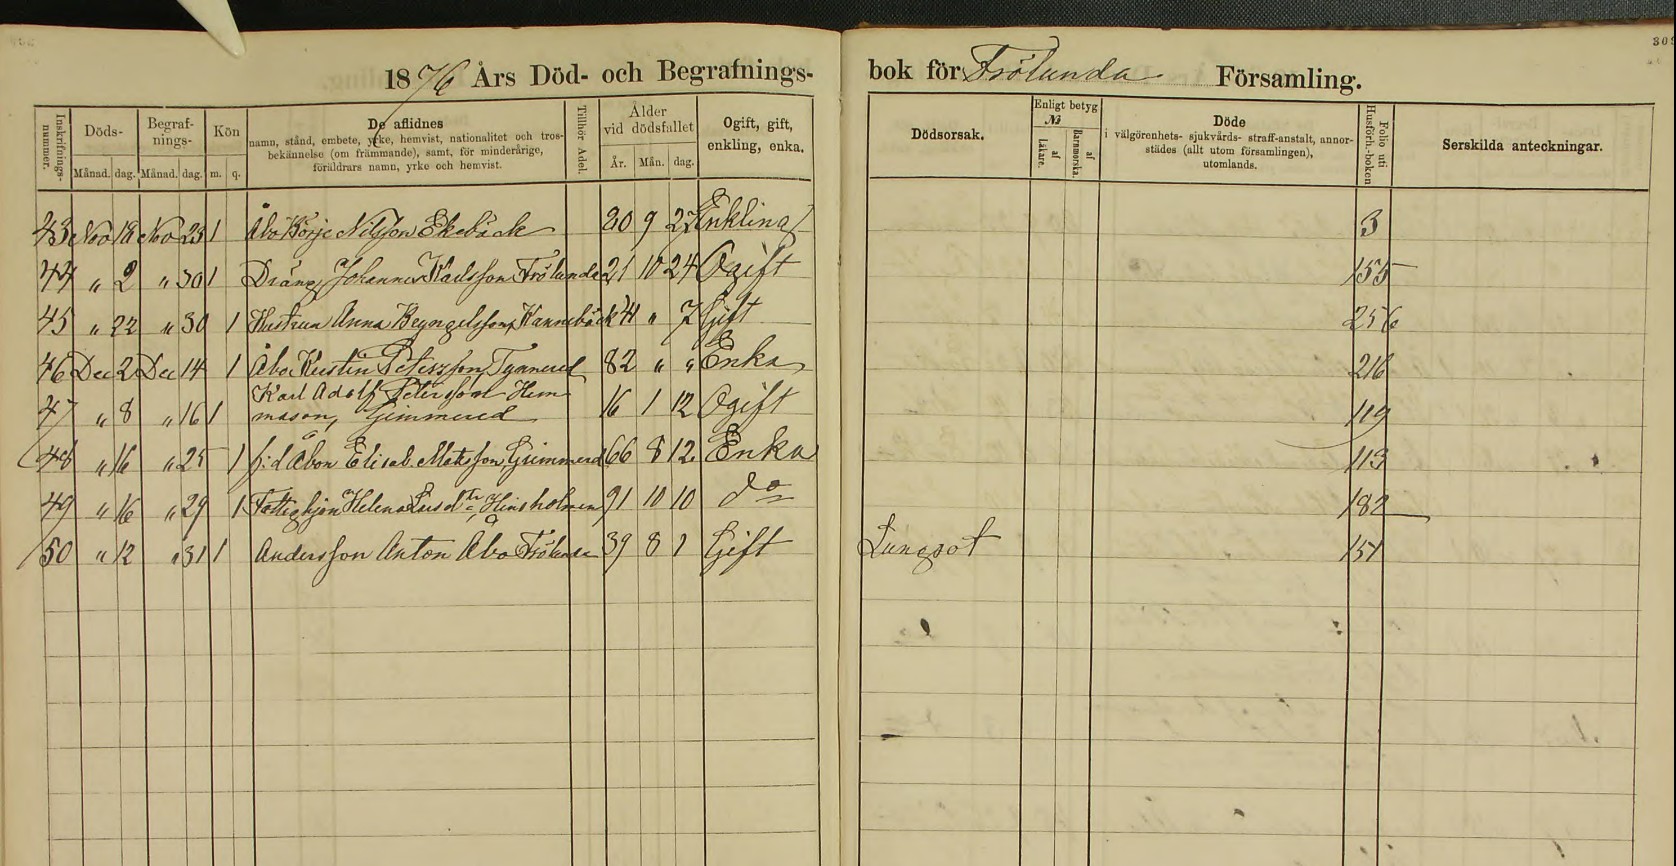 1876 Års Död- och Begrafnings- bok för Frölunda Församling.
Inskrifnings-nummer.
Döds-
Månad. dag.
Begraf-
nings-
Månad. dag.
Kön
m. q.
De aflidnes
namn, stånd, embete, yrke, hemvist, nationalitet och tros-
bekännelse (om främmande), samt, för minderårige,
föräldrars namn, yrke och hemvist.
Tillhör Adel.
Ålder
vid dödsfallet
År. Mån. dag.
Ogift, gift,
enkling, enka.
Dödsorsak.
Enligt betyg
№
af läkare.
af Barnmorska.
Döde
i välgörenhets- sjukvårds- straff-anstalt, annor-
städes (allt utom församlingen),
utomlands.
Folio uti
Husförh.-boken
Serskilda anteckningar.
43 Nov 18 Nov 23 1 Åbo Börje Nilsson Ekebäck 9 Enkling 3
44 " 2 " 30 1 Dräng Johannes Karlsson Frölunda 21 10 24 Ogift 155
45 " 22 " 30 1 Hustrun Anna Kannebäck " 7 Gift 256
46 Dec 2 Dec 14 1 Åbo Kerstin Petersson, Tynnered 82 " " Enka 216
47 " 8 " 16 1 Karl Adolf Petersson Hem-
masson, Grimmered 16 1 12 Ogift 119
48 " 16 " 25 1 f:d Åbon Elisab. Matsson, Grimmered 66 8 12 Enka 113
49 " 16 " 29 1 Fattighjon Helena Larsdtr, Hinsholmen 91 10 10 do 182
50 " 12 " 31 1 Andersson Anton Åbo Frölunda 39 8 1 Gift Lungsot 151